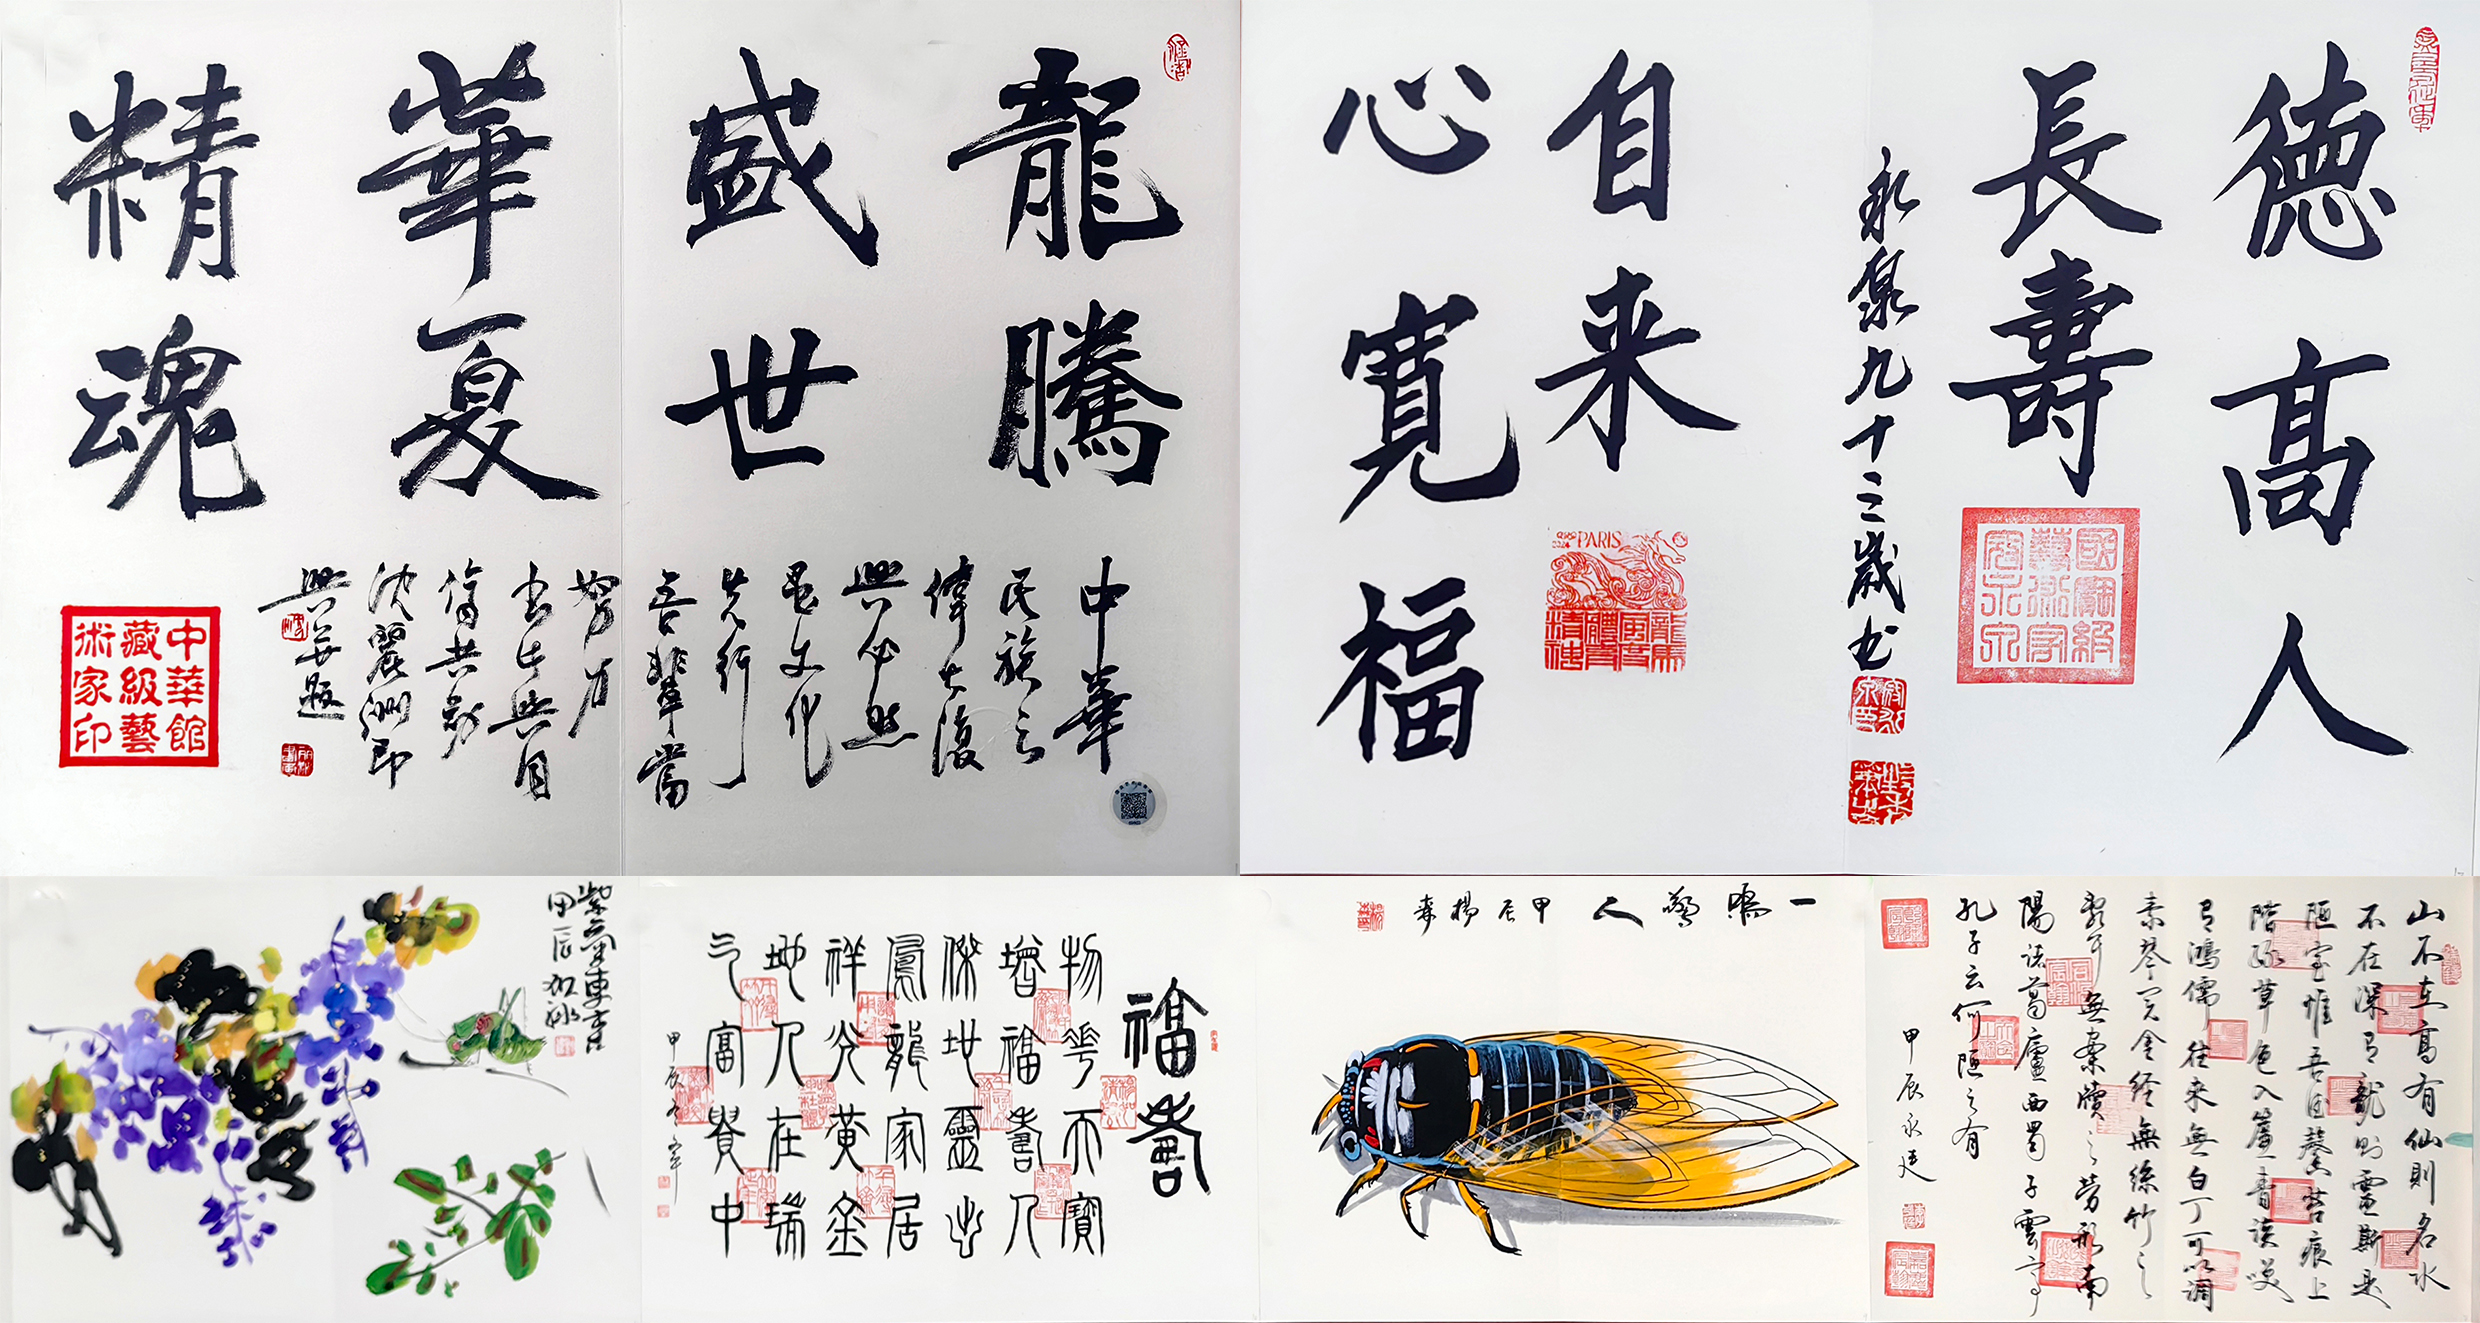 龍騰
盛世
華夏
精魂
中華
民族之
偉大復
興必然
是文化
先行
吾輩當
努力
中華館
藏級藝
術家印
德高人
長壽
永泉九十二歲书
自来
心寬福
PARIS
國寶級
藝術家
紫氣東来
甲辰
福壽
物華天寶
增福壽人
傑地靈出
鳳龍家居
祥光黄金
地人在瑞
气富貴中
甲辰冬
一鳴驚人
甲辰楊森
山不在高有仙則名水
不在深有龍則靈斯是
陋室惟吾德馨苔痕上
階綠草色入簾青談笑
有鴻儒往来無白丁可以調
素琴閱金經無絲竹之
亂耳無案牘之勞形南
陽諸葛廬西蜀子雲亭
孔子云何陋之有
甲辰永建